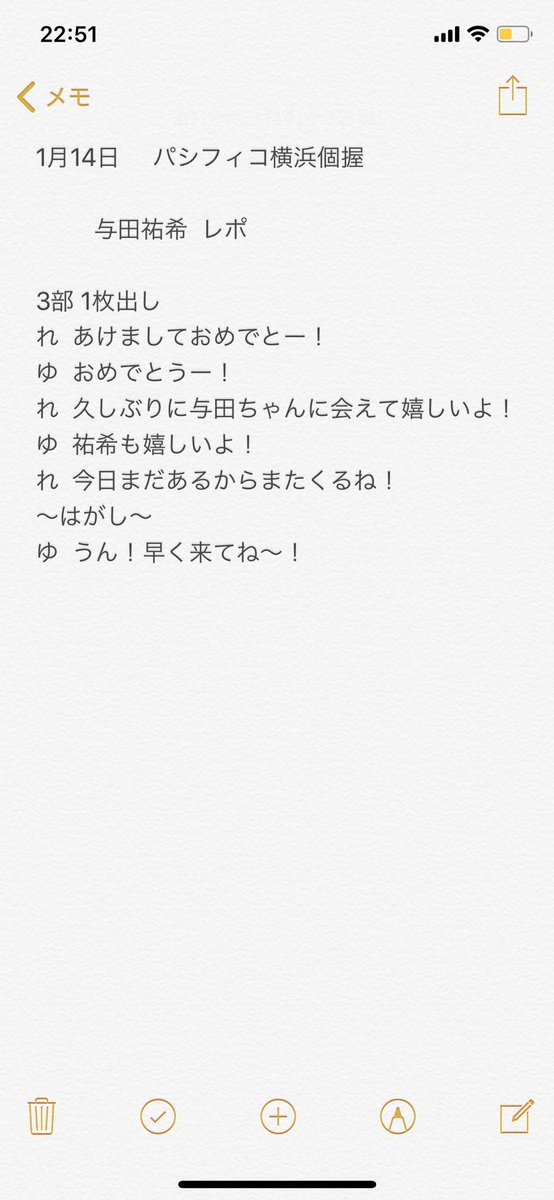 22:51
メモ
1月14日　パシフィコ横浜個握
与田祐希 レポ
3部 1枚出し
れ あけましておめでとー！
ゆ おめでとうー！
れ 久しぶりに与田ちゃんに会えて嬉しいよ！
ゆ 祐希も嬉しいよ！
れ 今日まだあるからまたくるね！
〜はがし〜
ゆ うん！早く来てね〜！